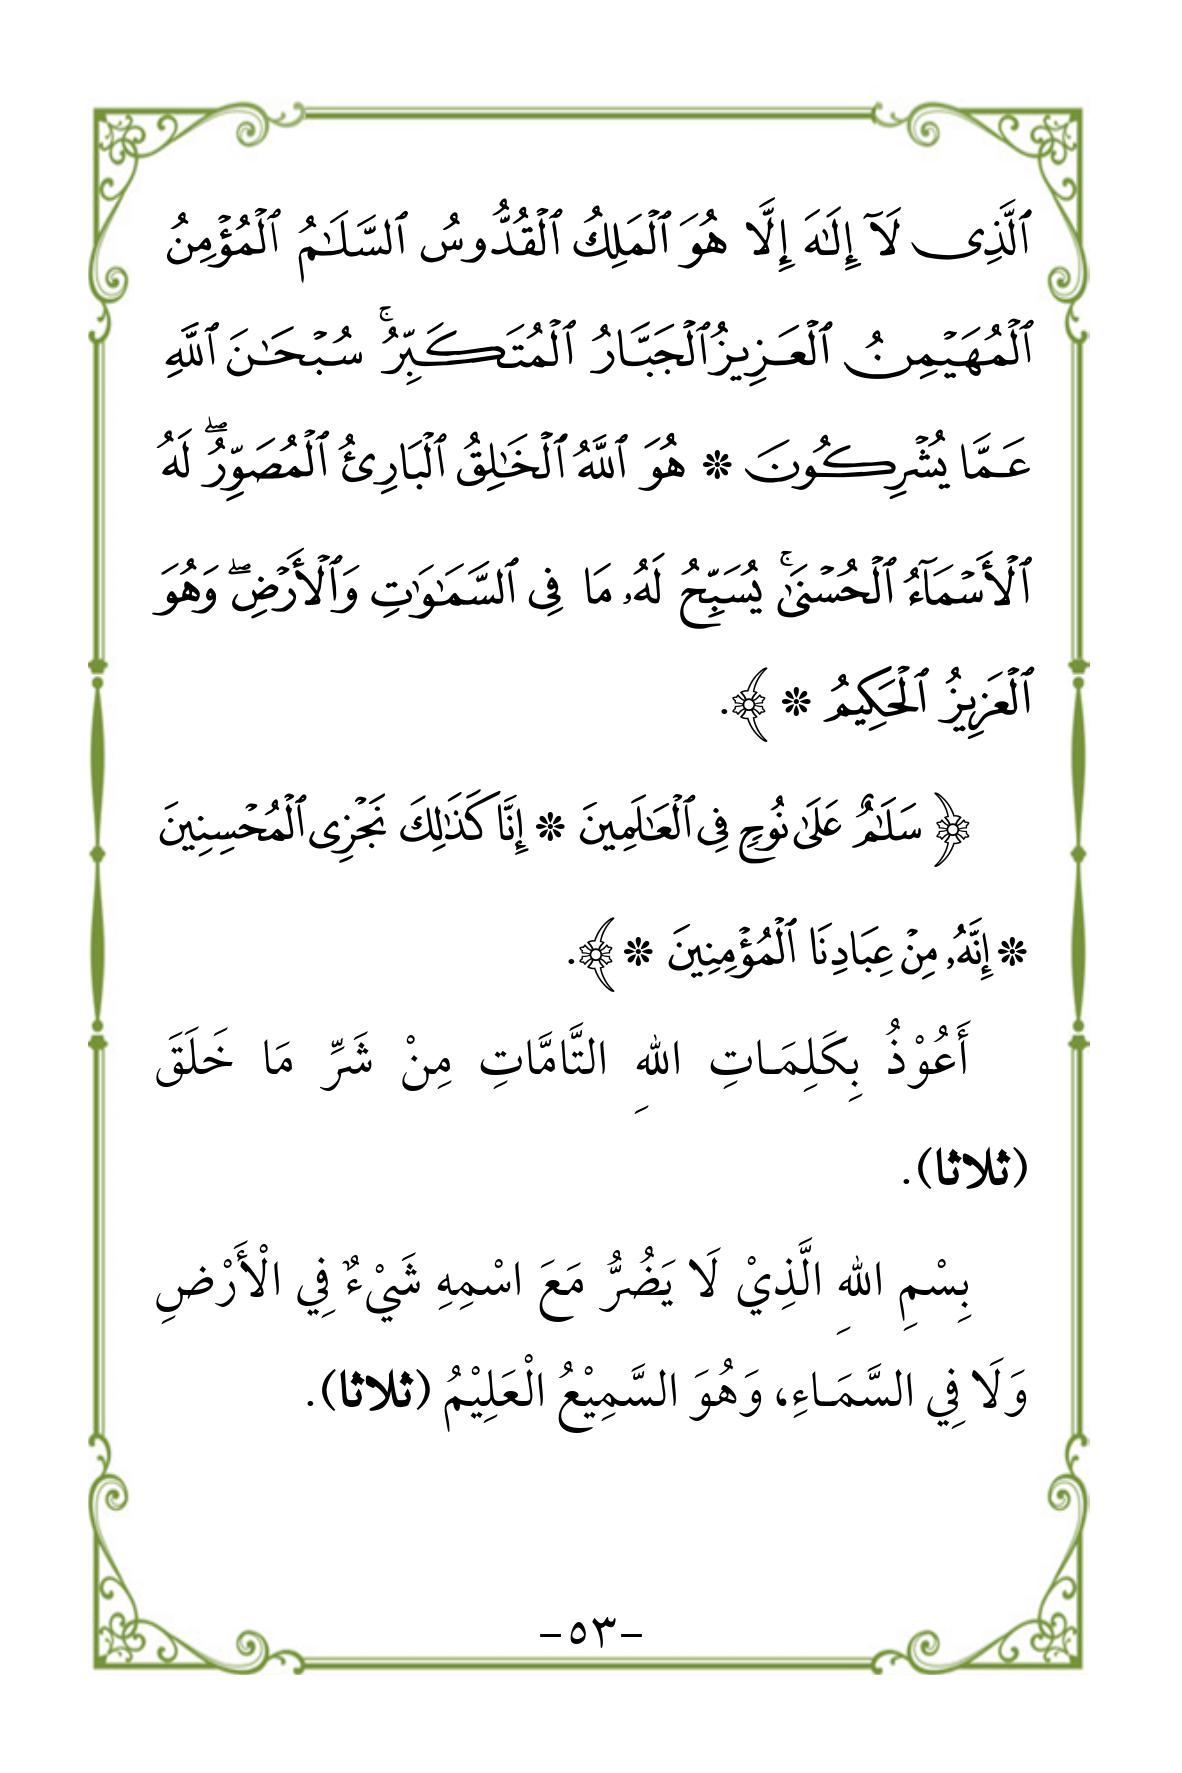 ٱلَّذِى لَآ إِلَـٰهَ إِلَّا هُوَ ٱلْمَلِكُ ٱلْقُدُّوسُ ٱلسَّلَـٰمُ ٱلْمُؤْمِنُ
ٱلْمُهَيْمِنُ ٱلْعَزِيزُ ٱلْجَبَّارُ ٱلْمُتَكَبِّرُ ۚ سُبْحَـٰنَ ٱللَّهِ
عَمَّا يُشْرِكُونَ ❇ هُوَ ٱللَّهُ ٱلْخَـٰلِقُ ٱلْبَارِئُ ٱلْمُصَوِّرُ ۖ لَهُ
ٱلْأَسْمَآءُ ٱلْحُسْنَىٰ ۚ يُسَبِّحُ لَهُۥ مَا فِى ٱلسَّمَـٰوَٰتِ وَٱلْأَرْضِ ۖ وَهُوَ
ٱلْعَزِيزُ ٱلْحَكِيمُ ❇ ﴾.
﴿ سَلَـٰمٌ عَلَىٰ نُوحٍ فِى ٱلْعَـٰلَمِينَ ❇ إِنَّا كَذَٰلِكَ نَجْزِى ٱلْمُحْسِنِينَ
❇ إِنَّهُۥ مِنْ عِبَادِنَا ٱلْمُؤْمِنِينَ ❇ ﴾.
أَعُوْذُ بِكَلِمَـاتِ اللهِ التَّامَّاتِ مِنْ شَرِّ مَا خَلَقَ
(ثلاثا).
بِسْمِ اللهِ الَّذِيْ لَا يَضُرُّ مَعَ اسْمِهِ شَيْءٌ فِي الْأَرْضِ
وَلَا فِي السَّمَـاءِ، وَهُوَ السَّمِيْعُ الْعَلِيْمُ (ثلاثا).
–٥٣–